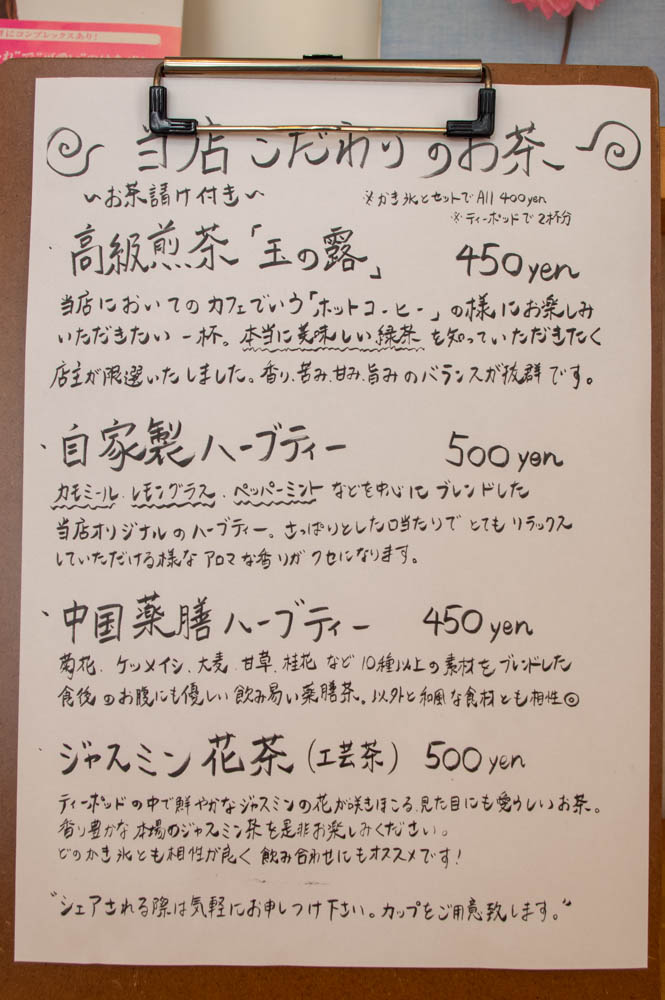 にコンプレックスあり!
当店こだわりのお茶
～お茶請け付き～
※かき氷とセットでAll 400yen
※ティーポッドで2杯分
高級煎茶「玉の露」 450yen
当店においてのカフェでいう「ホットコーヒー」の様にお楽しみ
いただきたい一杯。本当に美味しい緑茶を知っていただきたく
店主が厳選いたしました。香り、苦み、甘み、旨みのバランスが抜群です。
、自家製ハーブティー 500yen
カモミール、レモングラス、ペッパーミントなどを中心にブレンドした
当店オリジナルのハーブティー。さっぱりとした口当たりでとてもリラックス
していただける様なアロマな香りがクセになります。
、中国薬膳ハーブティー 450yen
菊花、ケツメイシ、大麦、甘草、桂花など10種以上の素材をブレンドした
食後のお腹にも優しい飲み易い薬膳茶。以外と和風な食材とも相性◎
ジャスミン花茶(工芸茶) 500yen
ティーポッドの中で鮮やかなジャスミンの花が咲きほこる、見た目にも愛らしいお茶。
香り豊かな本場のジャスミン茶を是非お楽しみください。
どのかき氷とも相性が良く飲み合わせにもオススメです!
"シェアされる際は気軽にお申しつけ下さい。カップをご用意致します。"